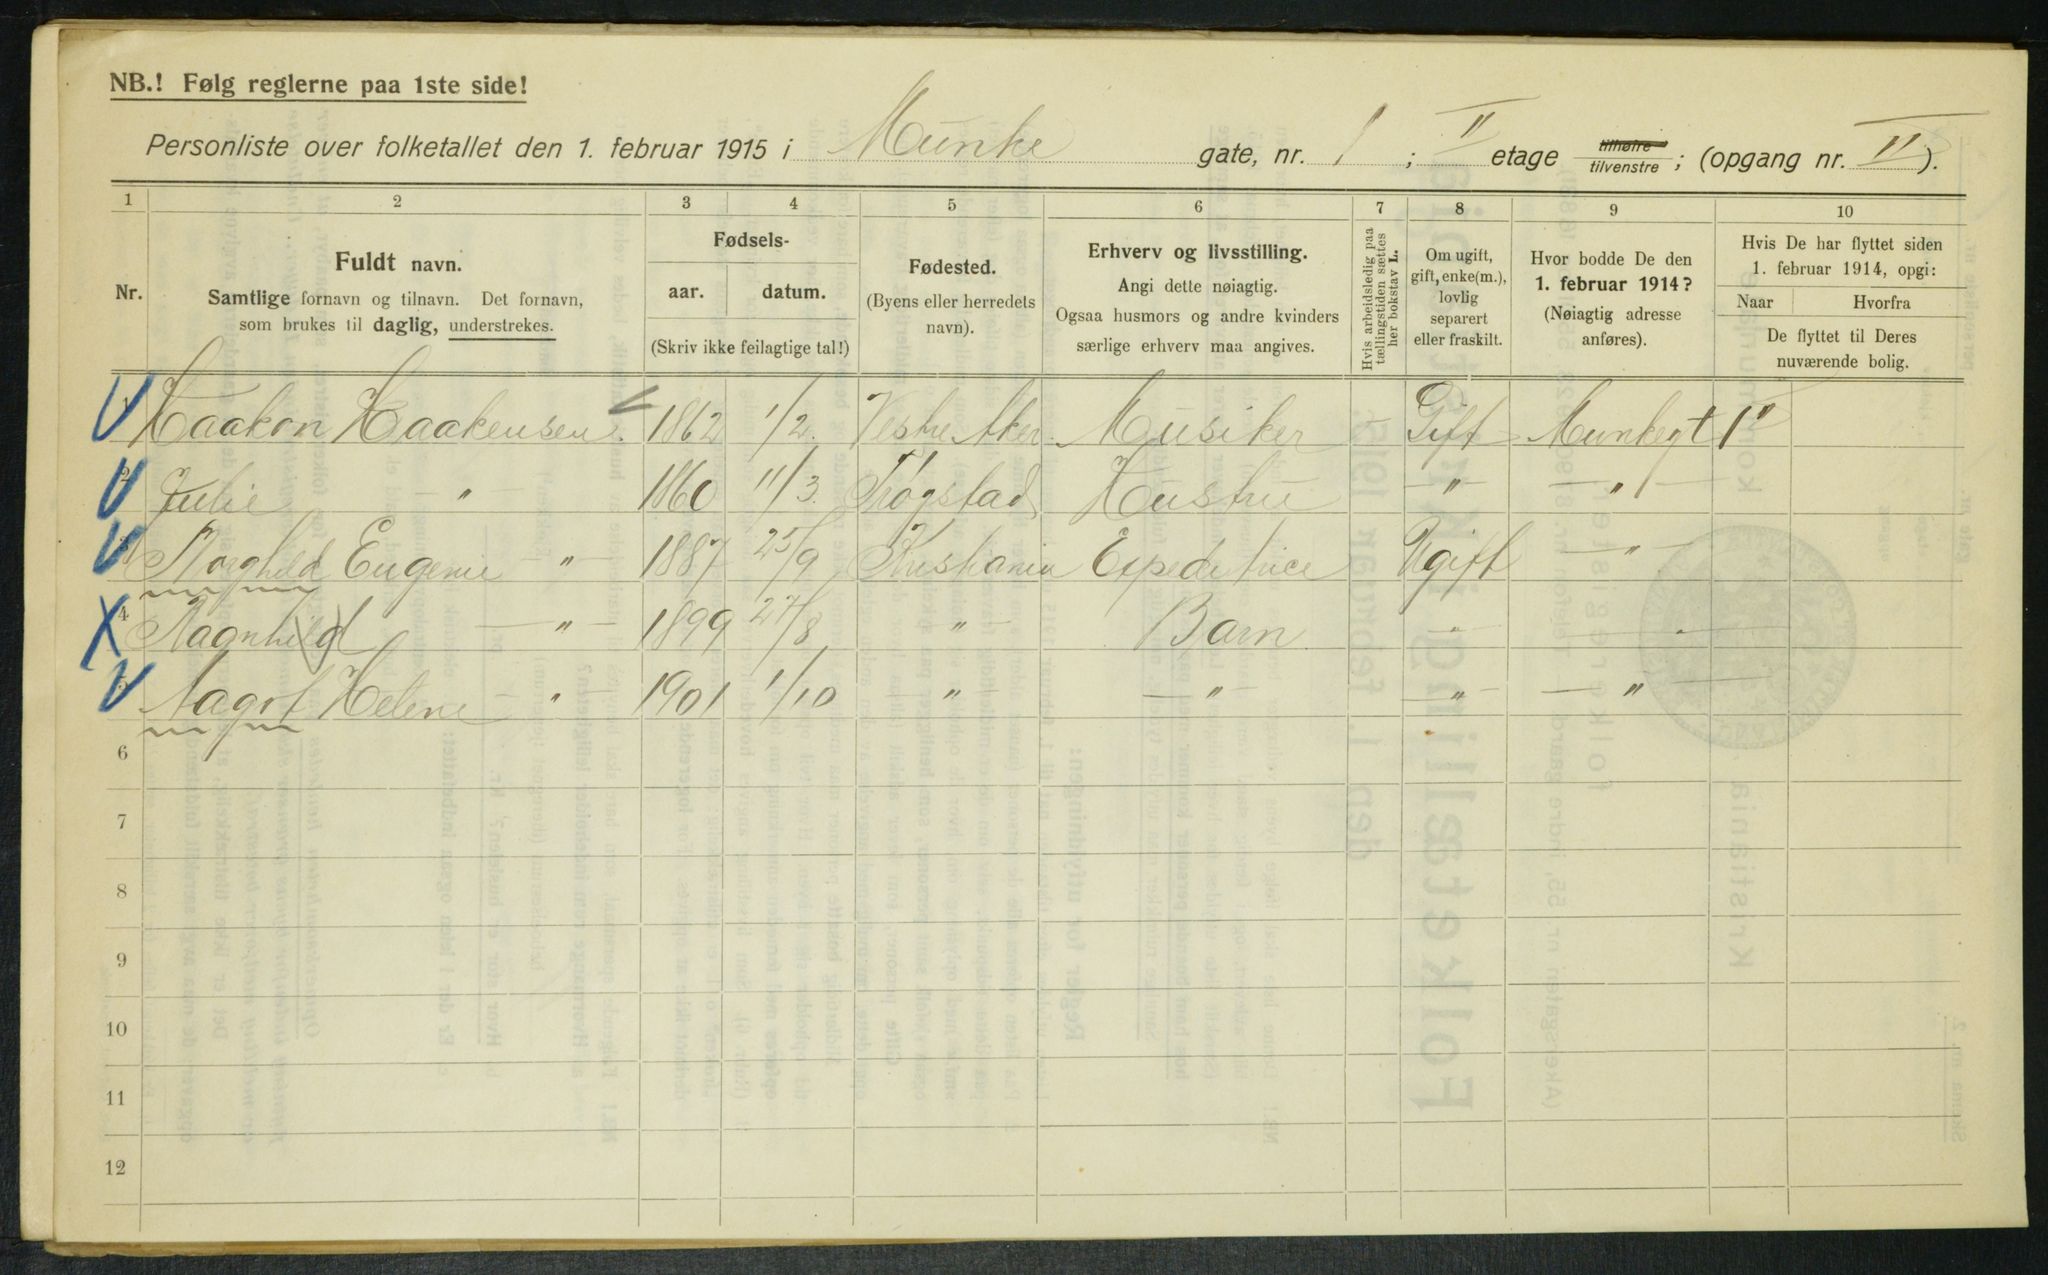 NB.! Følg reglerne paa 1ste side!
Personliste over folketallet den 1. februar 1915 i Munke gate, nr. 1 ; II etage tilhøire tilvenstre ; (opgang nr. II ).
1 2 3 4 5 6 7 8 9 10
Nr.
Fuldt navn.
Samtlige fornavn og tilnavn. Det fornavn,
som brukes til daglig, understrekes.
Fødsels-
aar. datum.
(Skriv ikke feilagtige tal!)
Fødested.
(Byens eller herredets
navn).
Erhverv og livsstilling.
Angi dette nøiagtig.
Ogsaa husmors og andre kvinders
særlige erhverv maa angives.
Hvis arbeidsledig paa
tællingstiden sættes
her bokstav L.
Om ugift,
gift, enke(m.),
lovlig
separert
eller fraskilt.
Hvor bodde De den
1. februar 1914?
(Nøiagtig adresse
anføres).
Hvis De har flyttet siden
1. februar 1914, opgi:
Naar Hvorfra
De flyttet til Deres
nuværende bolig.
1 Haakon Haakensen 1862 1/2. Vestre Aker Musiker Gift Munkegt 1 II
2 Julie " 1860 11/3. Trøgstad Hustru " "
3 Borghild Eugenie " 1887 25/9 Kristiania Expeditrice Ugift "
4 Ragnhild " 1899 27/8 " Barn " "
5 Aagot Helene " 1901 1/10 " " " "
6
7
8
9
10
11
12